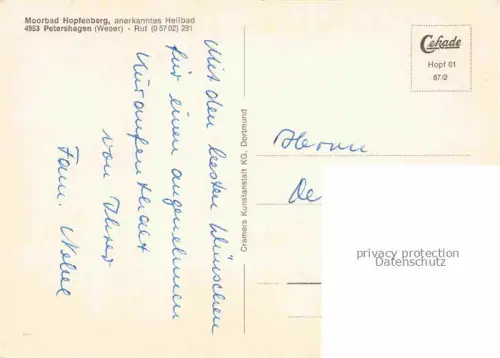 Moorbad Hopfenberg, anerkanntes Heilbad
4953 Petershagen (Weser) - Ruf (0 57 02) 281
Mit den besten Wünschen
für einen angenehmen
Kuraufenthalt
von Ihrer
Fam. Nobel
Cramers Kunstanstalt KG, Dortmund
Cekade
Hopf 01
67/2
Herrn
De
privacy protection
Datenschutz